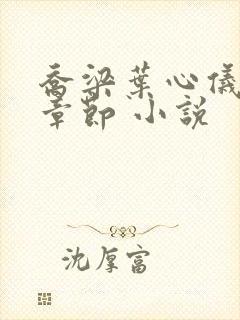 喬梁葉心儀
章節 小說
沈厚富